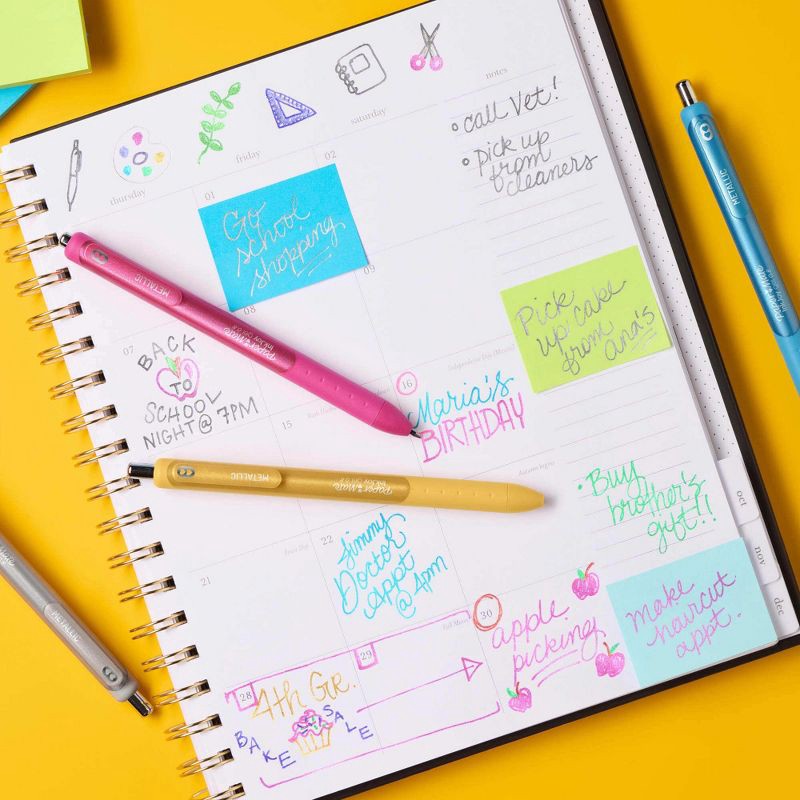 thursday
friday
saturday
notes
• call Vet!
• pick up
from
cleaners
01
02
Go
school
shopping
08
09
Pick
up cake
from ana's
07
BACK
TO
SCHOOL
NIGHT @ 7PM
15
16
Independence Day (Mexico)
Maria's
BIRTHDAY
Autumn begins
• Buy
brother's
gift!!
21
22
Jimmy
Doctor
appt
@ 4pm
Full Moon
28
29
30
4th Gr.
BAKE SALE
apple
picking
make
haircut
appt.
oct
nov
dec
METALLIC
Paper Mate
InkJoy Gel 0.8
METALLIC
Paper Mate
InkJoy Gel 0.8
METALLIC
Paper Mate
METALLIC